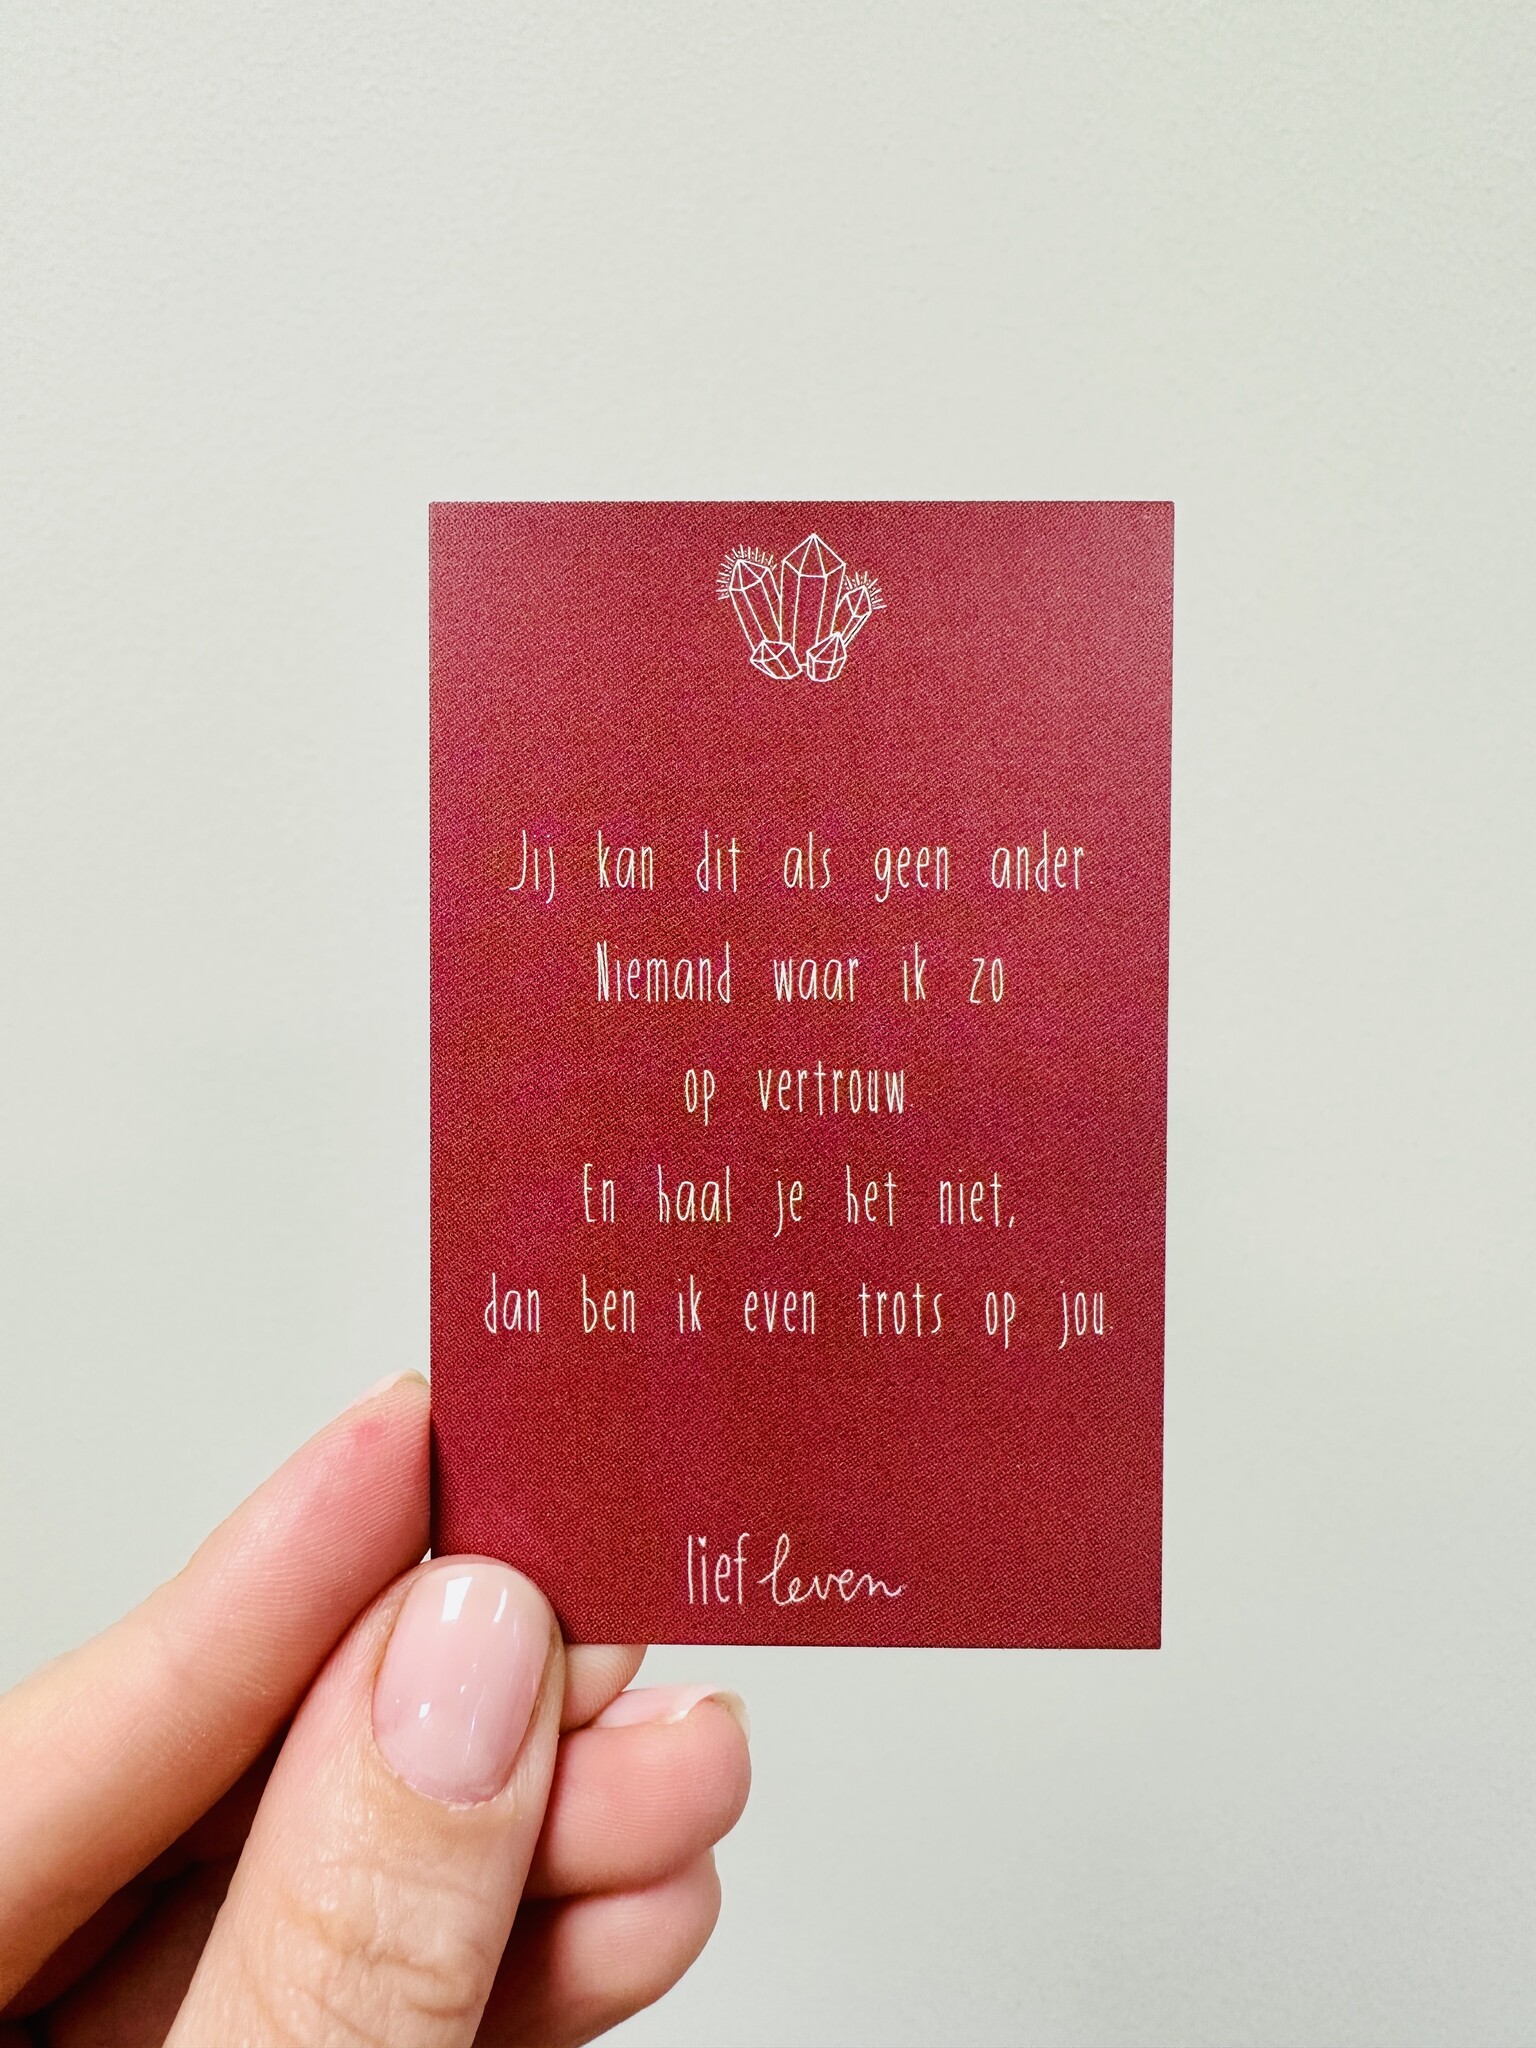 Jij kan dit als geen ander.
Niemand waar ik zo
op vertrouw.
En haal je het niet,
dan ben ik even trots op jou.
lief leven